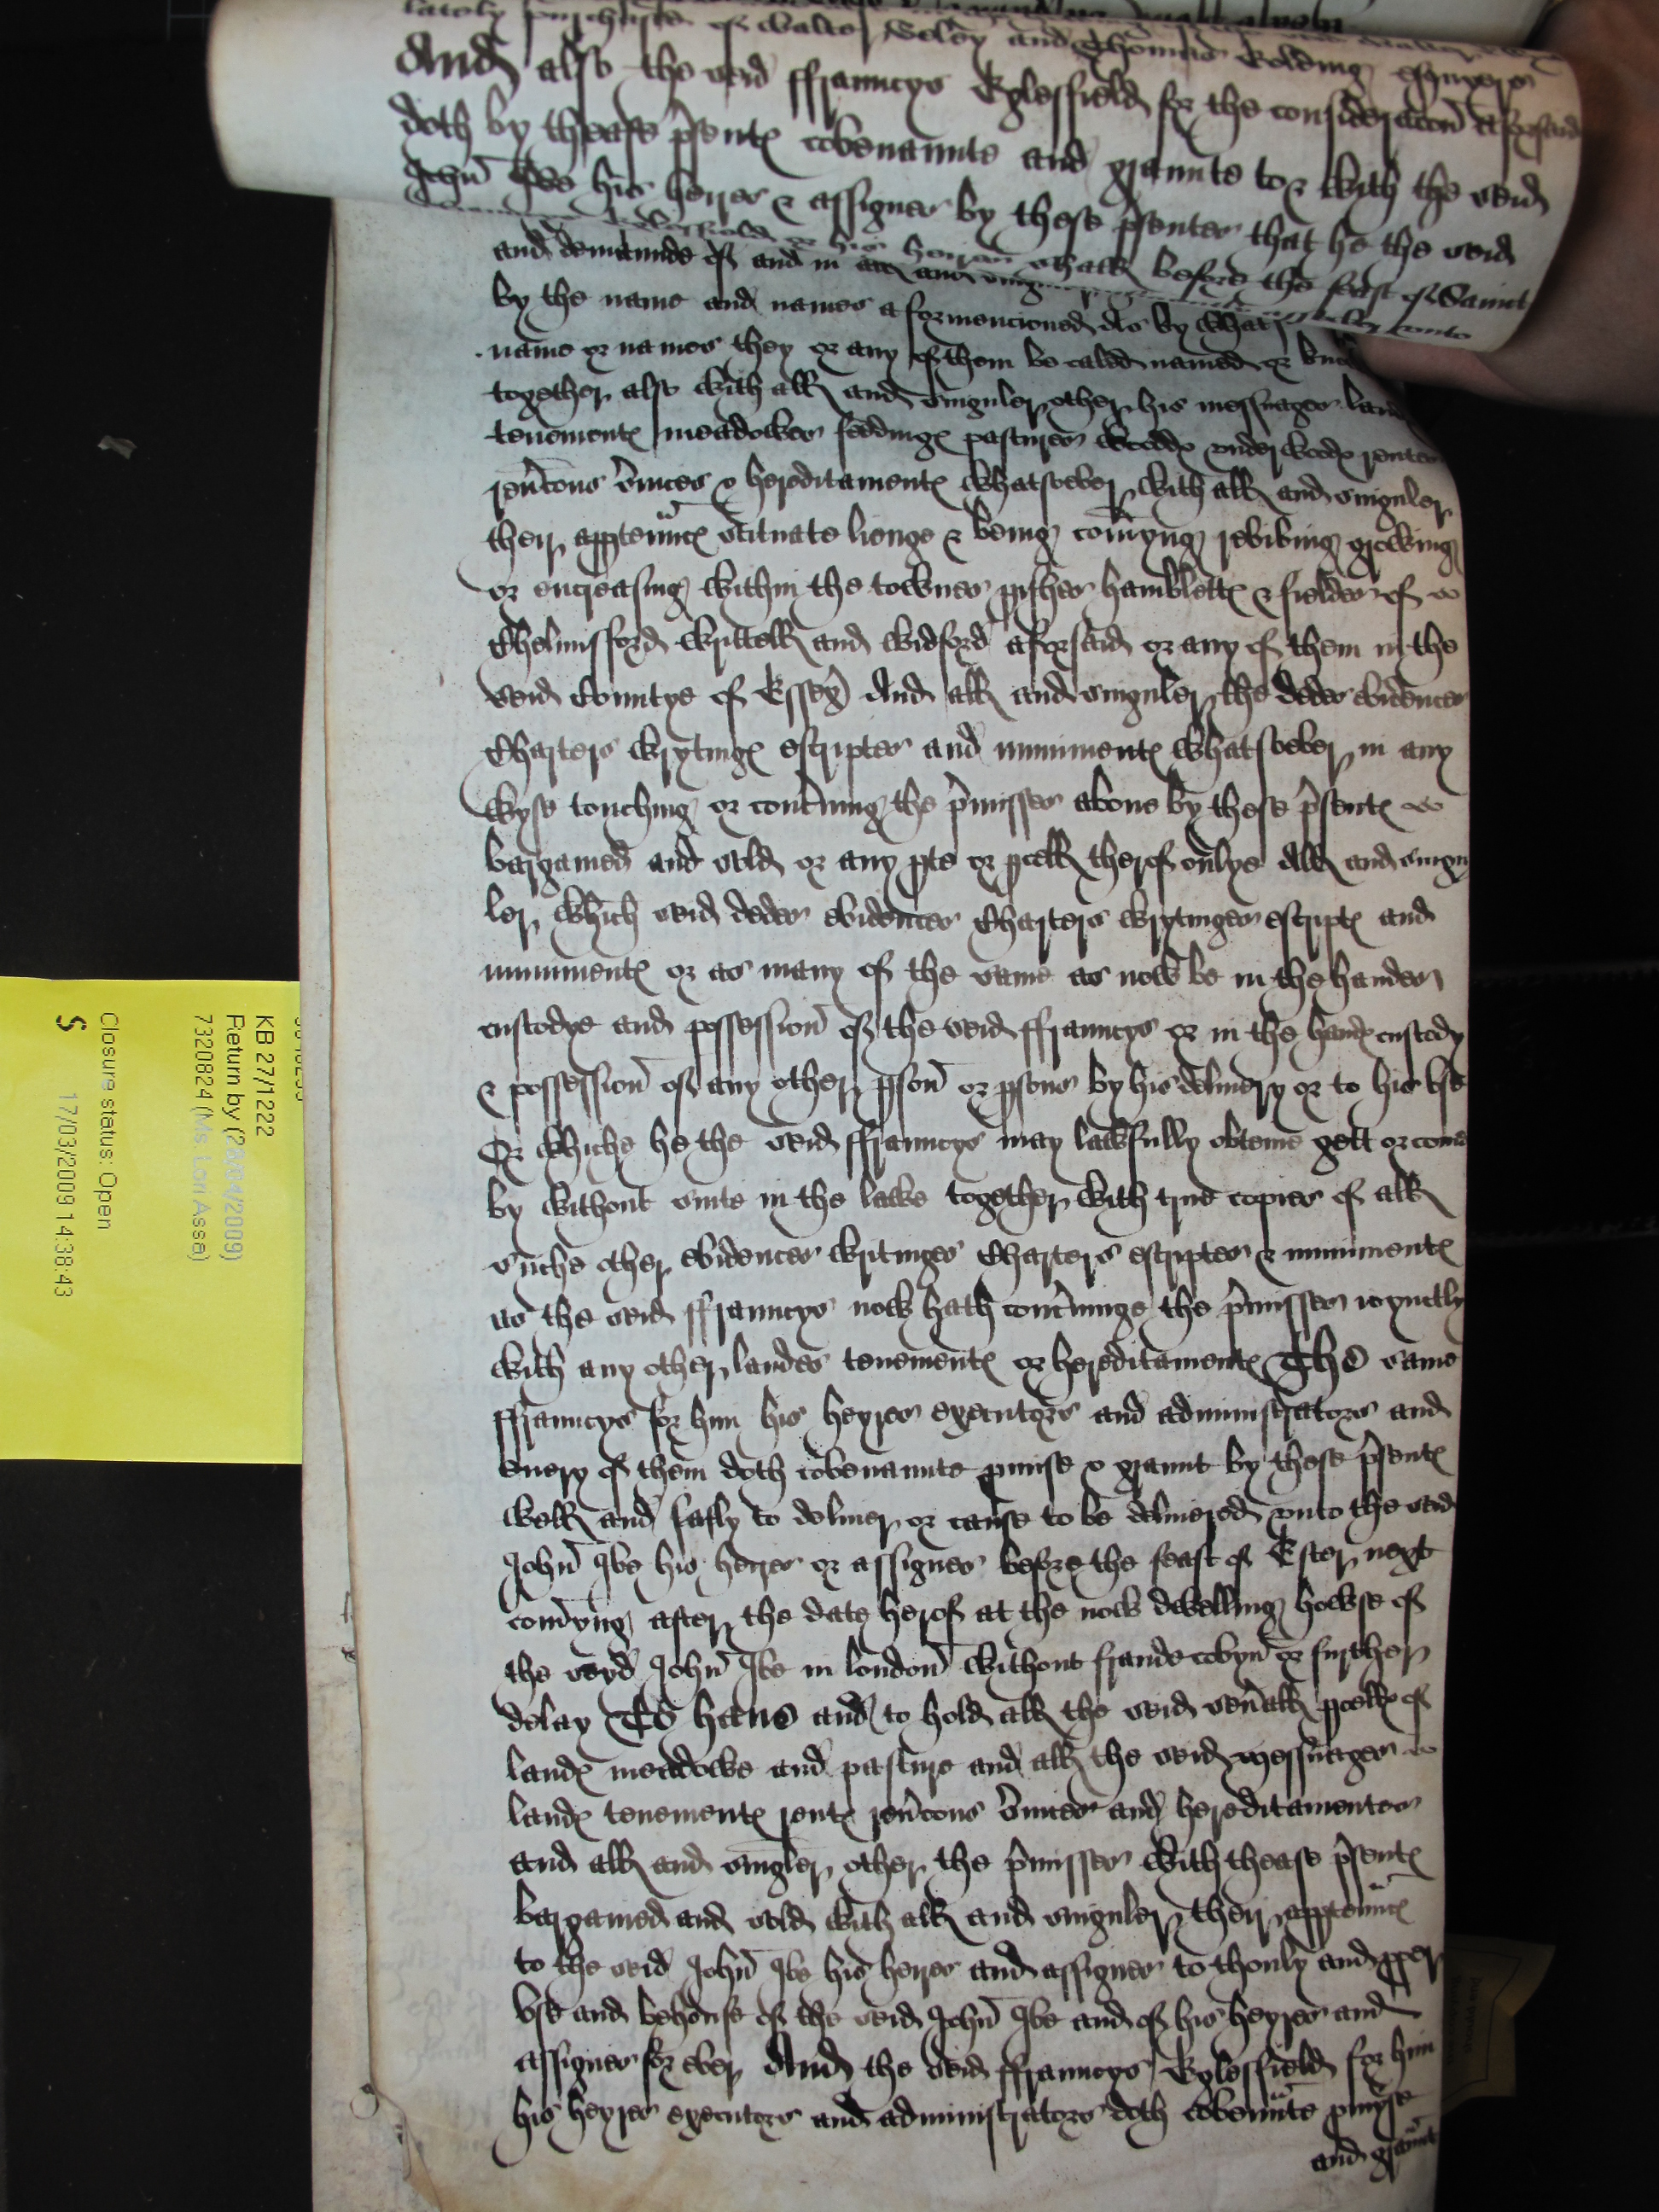 lately purchased of Walter and Thomas Golding esquyers
And also the seid ffrauncys Eglesfield for the consideracon aforsaid
doth by thease p'sentℯ covenaunte and graunte to & with the seid
John Ive his heires & assignes by these p'sentes that he the seid
or his heires shall before the feast of Saint
and demaunde of and in all and
by the name and names aformencioned As by what
name or names they or any of them be caled named or
together also with all and singuler other his messuages
tenementℯ meadowes feddingℯ pastures woodℯ underwoodℯ rentes
rev'cons s'vices & hereditamentℯ whatsoever with all and singuler
their apptennncℯ scituate lienge & being comyng reviving growing
or encreasing within the townes p'ishes hamblettℯ & fieldes of
Chelmisford Writtell and Widford aforsaid or any of them in the
seid Countye of Essex And all and singuler the dedes evidences
Charters wrytingℯ escriptes and munimentℯ whatsoever in any
wyse touching or conc'ning the p'misses above by these p'sentℯ
bargained and sold or any pte or pcell therof onlye All and singu
ler which seid dedes evidences Charters wrytinges escriptℯ and
munimentℯ or as many of the same as now be in the handes
custodye and possession of the seid ffrauncys or in the handℯ custody
& possession of any other pson or psons by his delivery or to his use
Or whiche he the seid ffrauncys may lawfully obteine gett or come
by without suite in the lawe together with true copies of all
suche other evidences writinges Charters escriptes & munimentℯ
as the seid ffrauncys now hath conc'ninge the p'misses ioynctly
with any other landes tenementℯ or hereditamentℯ The same
ffrauncys for him his heyres executors and administrators and
every of them doth covenaunte pmise & graunt by these p'sentℯ
well and safly to deliver or cause to be delivered unto the seid
John Ive his heires or assignes before the feast of Ester next
comyng after the date herof at the now dwelling howse of
the seyd John Ive in london without fraude covyn or further
delay To have and to hold all the seid sev'all pcellℯ of
landℯ meadowe and pasture and all the seid messuages
landℯ tenementℯ rentℯ rev'cons s'vices and hereditamentes
and all and singler other the p'misses with thease p'sentℯ
bargained and sold with all and singuler their apptennncℯ
to the seid John Ive his heires and assignes to thonly and pper
use and behoufe of the seid John Ive and of his heyres and
assignes for ever And the seid ffrauncys Eglesfield for him
his heyres executors and administrators doth covennte pmyse
and graunt
KB 27/1222
Return by (20/04/2009)
7320824 (Ms. Lori Asse)
Closure status: Open
S 17/03/2009 14:38:43